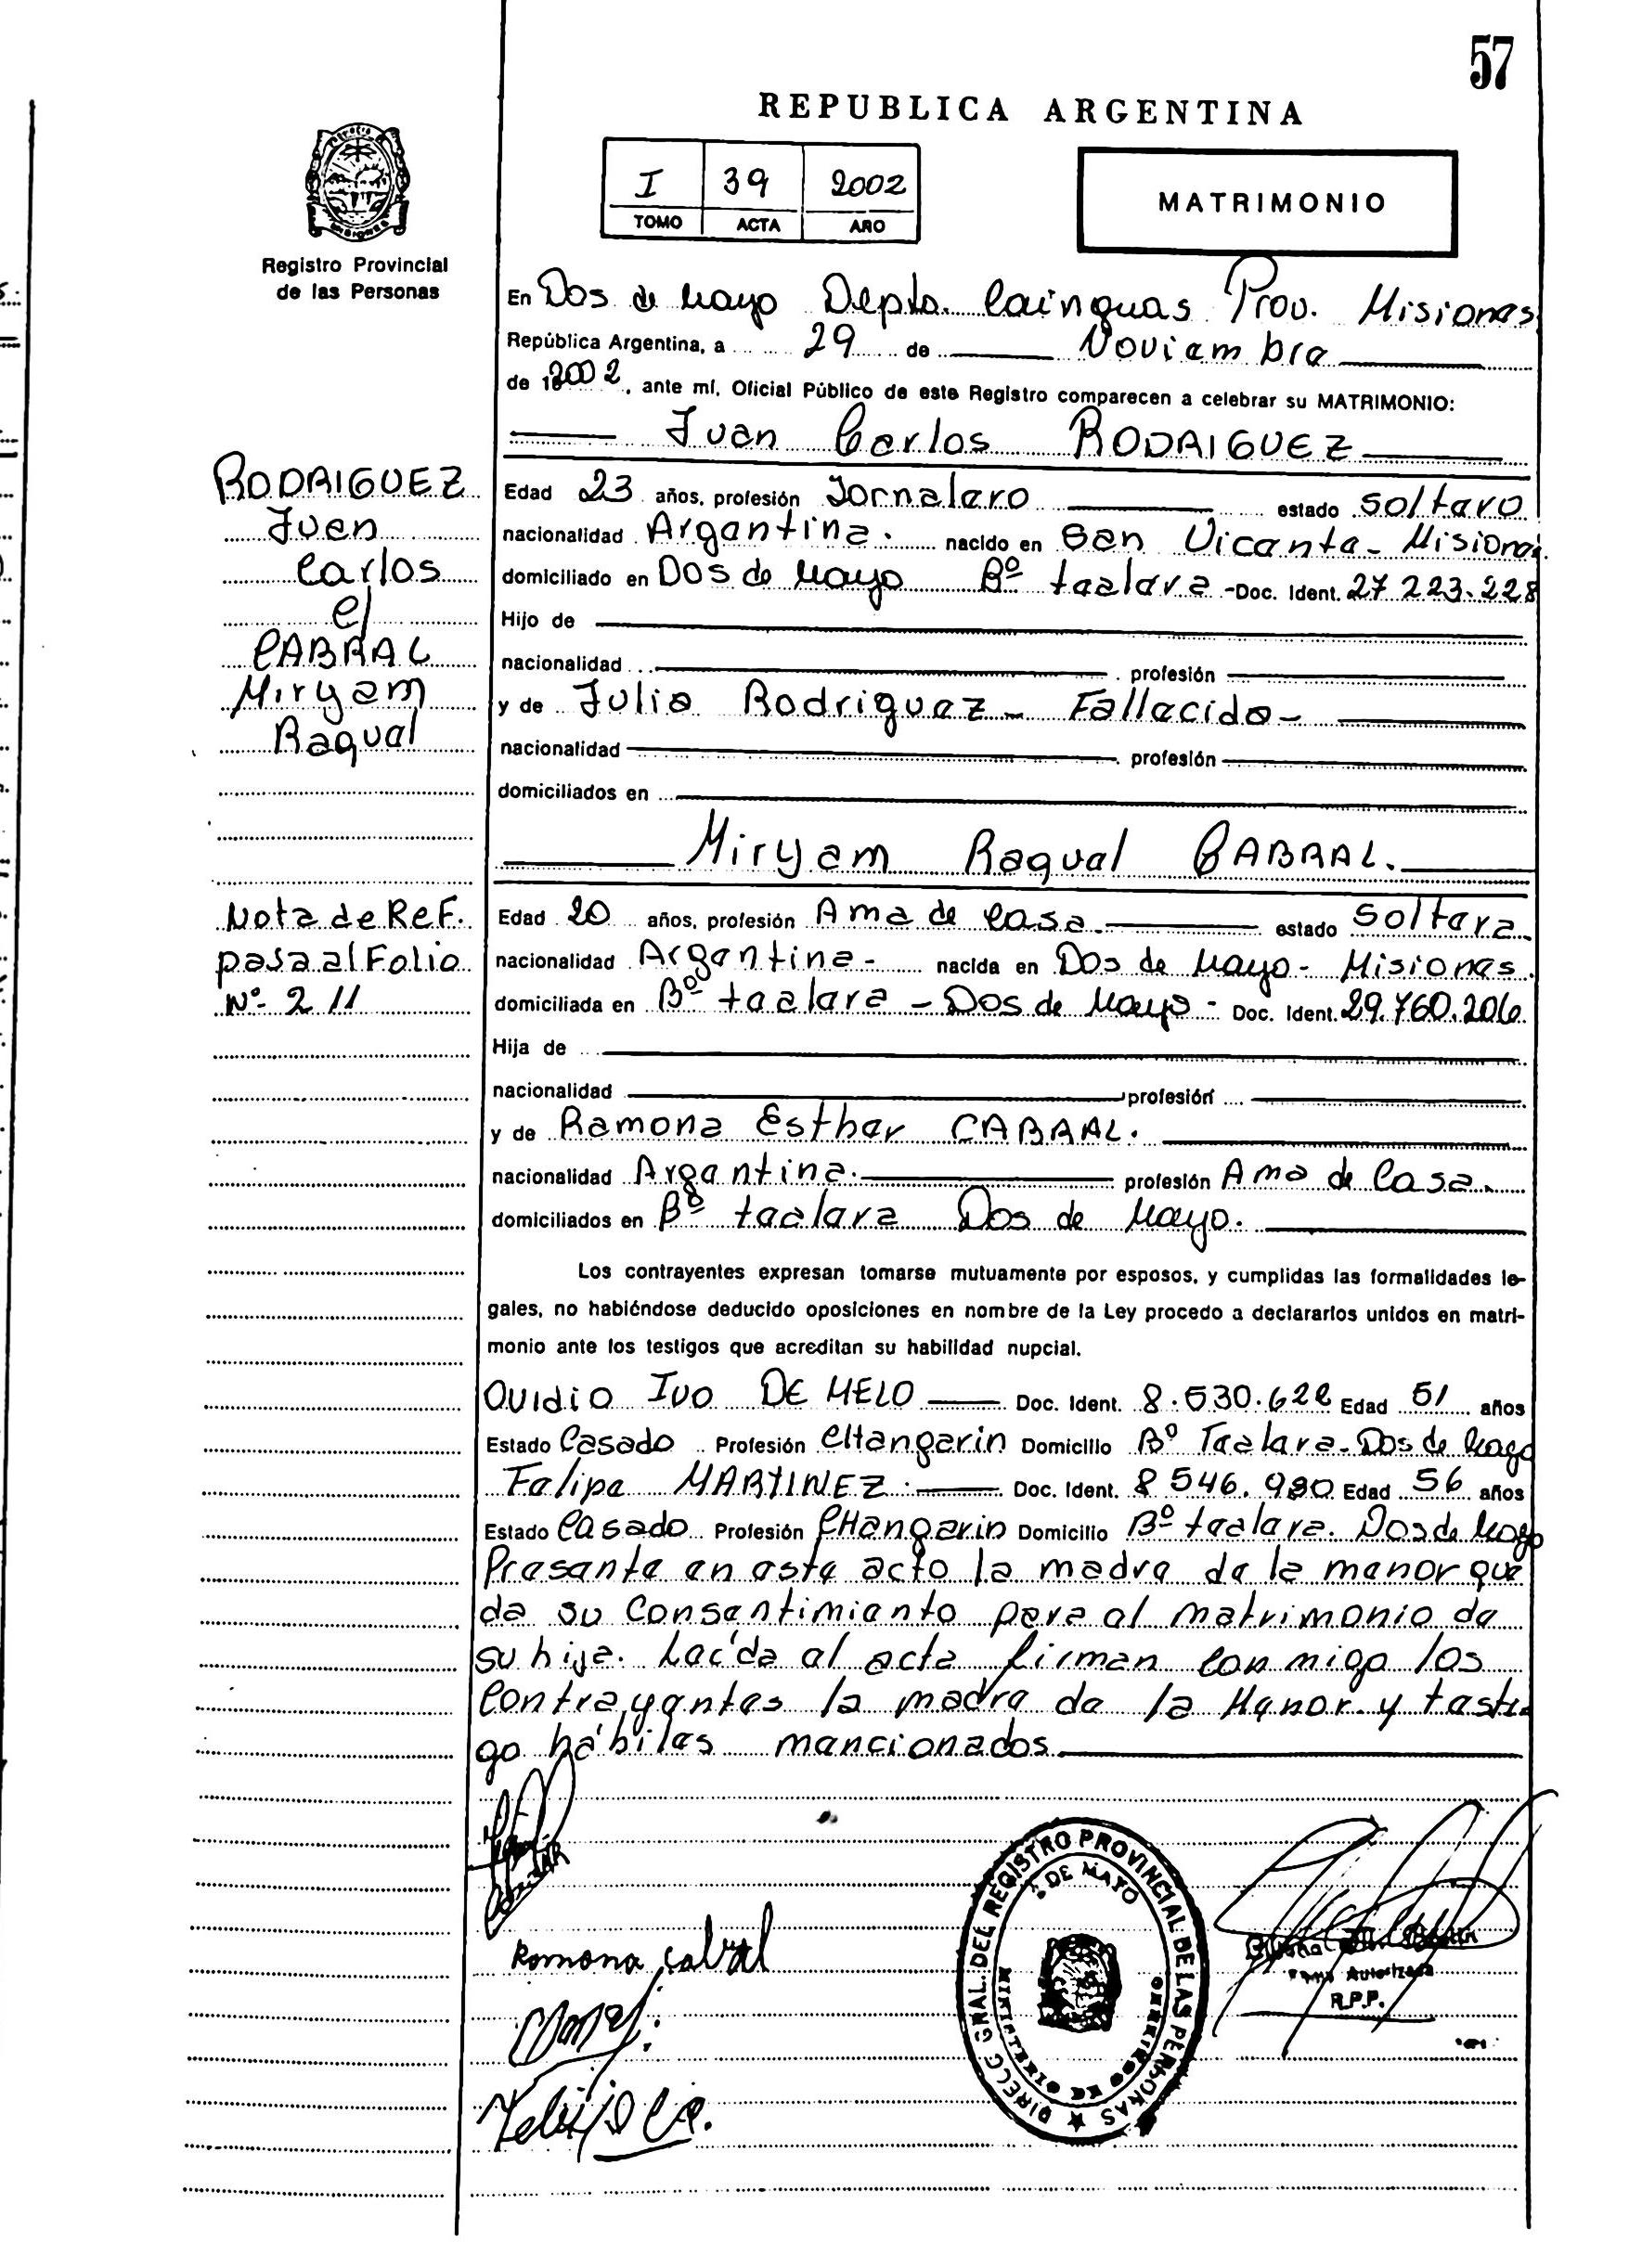 57
REPUBLICA ARGENTINA
I 39 2002
TOMO ACTA AÑO
MATRIMONIO
Registro Provincial
de las Personas
En Dos de Mayo Depto. Cainguas Prov. Misiones
República Argentina, a 29 de Noviembre
de 2002, ante mí, Oficial Público de este Registro comparecen a celebrar su MATRIMONIO:
Juan Carlos RODRIGUEZ
RODRIGUEZ
Juan
Carlos
c/
CABRAL
Miryam
Raquel
Edad 23 años, profesión Jornalero estado soltero
nacionalidad Argentina. nacido en San Vicente - Misiones
domiciliado en Dos de Mayo Bº tealera - Doc. Ident. 27.223.228
Hijo de
nacionalidad profesión
y de Julio Rodriguez - Fallecido -
nacionalidad profesión
domiciliados en
Miryam Raquel CABRAL.
Nota de ReF.
pasa al Folio
Nº 211
Edad 20 años, profesión Ama de Casa. estado Soltera
nacionalidad Argentina - nacida en Dos de Mayo - Misiones.
domiciliada en Bº tealera - Dos de Mayo - Doc. Ident. 29.760.206
Hija de
nacionalidad profesión
y de Ramona Esther CABRAL.
nacionalidad Argentina. profesión Ama de Casa.
domiciliados en Bº tealera Dos de Mayo.
Los contrayentes expresan tomarse mutuamente por esposos, y cumplidas las formalidades le-
gales, no habiéndose deducido oposiciones en nombre de la Ley procedo a declararlos unidos en matri-
monio ante los testigos que acreditan su habilidad nupcial.
Ovidio Ivo DE MELO Doc. Ident. 8.530.622 Edad 51 años
Estado Casado Profesión CHangarin Domicilio Bº Tealera - Dos de Mayo
Felipe MARTINEZ. Doc. Ident. 8546.980 Edad 56 años
Estado Casado Profesión CHangarin Domicilio Bº tealera. Dos de Mayo
Presente en este acto la madre de la menor que
da su Consentimiento para el matrimonio de
su hija. Leída el acta firman conmigo los
Contrayentes la madre de la Menor y testi
go hábiles mencionados
Ramona Cabral
DIRECC GRAL. DEL REGISTRO PROVINCIAL DE LAS PERSONAS
DE MAYO
Autorizada
R.P.P.